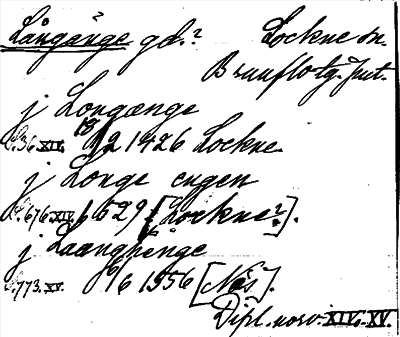 Långånge gd.? Lockne sn.
Brunflo tg. Jmt.
j Longænge
s. 36 XIV. 18/2 1426 Lockne
j Longe engen
s. 676 XIV. 1529 [Lockne?].
j Laanghenge
s. 773. XV. 9/6 1556 [Näs].
Dipl. norv. XIV. XV.